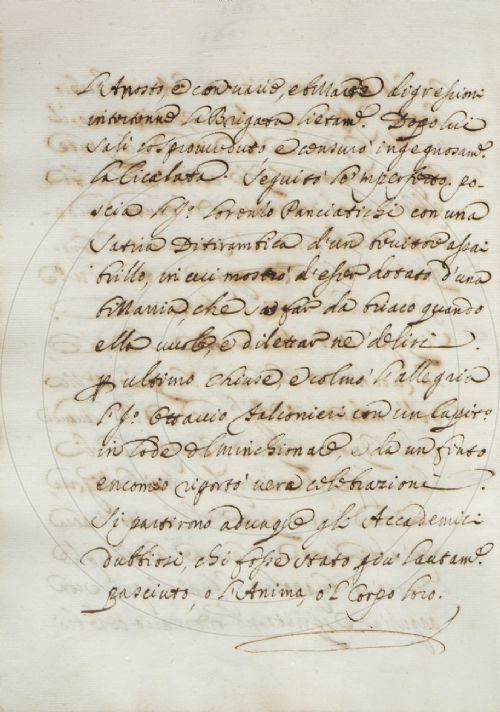 l'Arrosto, e con varie, e bizzarre digressioni
intertenne la Brigata lietam.e Dopo lui
salì l'Osprouveduto e censurò ingegnosam.e
la Cicalata. Seguitò l'Imperfetto, po-
scia il S.r Lorenzo Panciatichi con una
Satira Ditirambica d'un bevitore assai
brillo, in cui mostrò d'esser dotato d'una
che sa far da briaco quando
ella vuole, e dilettar ne' deliri.
P ultimo chiuse e colmò l'allegria
il S.r Ottavio Falconieri con un
in lode del minchionare e da un finto
encomio riportò vera celebrazione.
Si partirono adunq.e gli Accademici
dubbiosi, chi fosse stato più lautam.e
pasciuto, o l'Anima, o 'l Corpo loro.